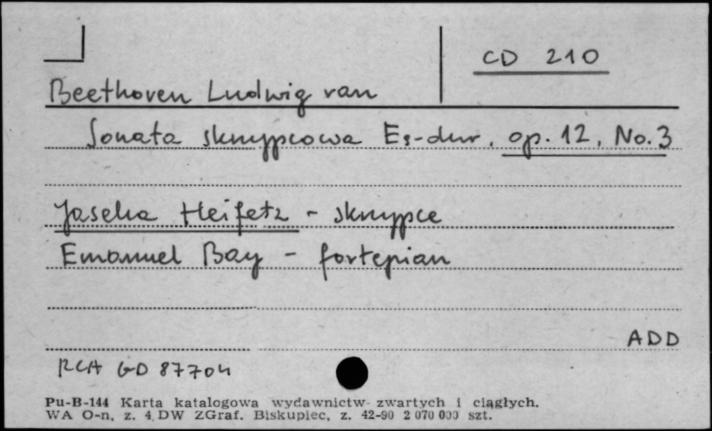 CD 210
Beethoven Ludwig van
Sonata skrzypcowa Es-dur, op. 12, No. 3
Jascha Heifetz - skrzypce
Emanuel Bay - fortepian
ADD
RCA GD 87704
Pu-B-144 Karta katalogowa wydawnictw zwartych i ciągłych.
WA O-n, z. 4 DW ZGraf. Biskupiec, z. 42-90 2 070 000 szt.